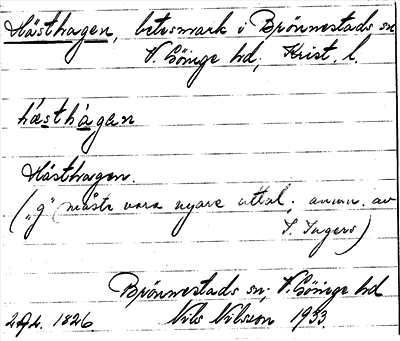 Hästhagen, betesmark i Brönnestads sn
V. Göinge hd, Krist. l.
hästhàgan
Hästhagen.
("g" måste vara nyare uttal; anmn. av
I. Ingers)
Brönnestads sn; V. Göinge hd
1826. Nils Nilsson 1933.